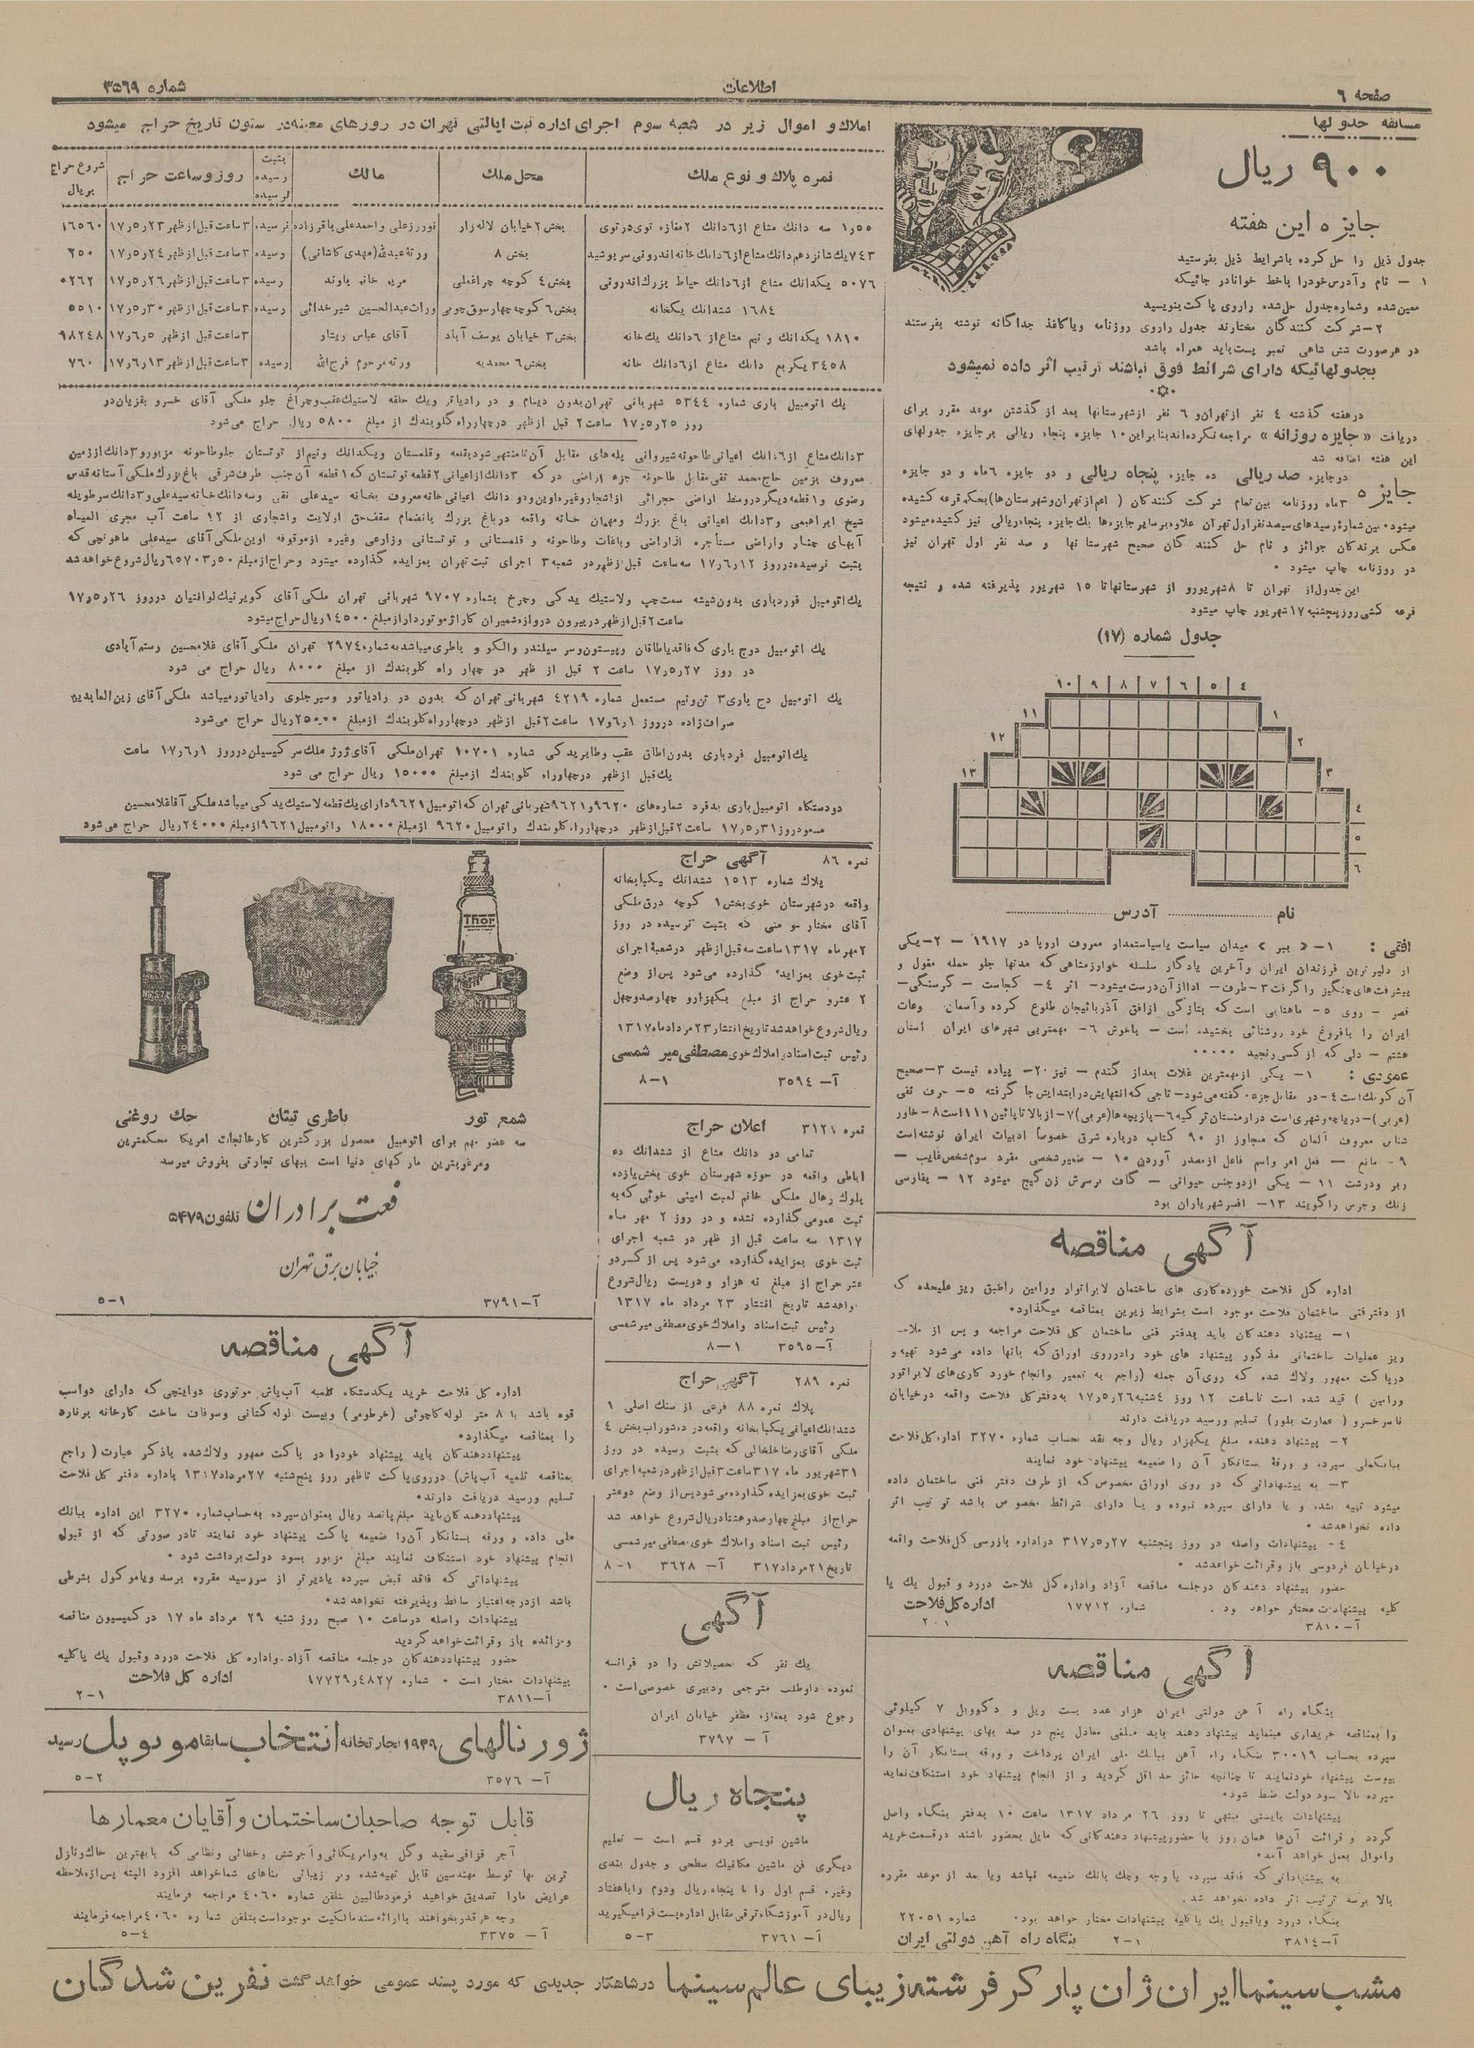 صفحه ٦
اطلاعات
شماره ۳۵٦۹
مسابقه جدولها
۹۰۰ ریال
جایزه این هفته
جدول ذیل را حل کرده باشرایط ذیل بفرستید
۱ — نام وآدرس خودرا باخط خوانادر جائیکه
معین شده وشماره جدول حل شده راروی پاکت بنویسید
۲— شرکت کنندگان مختارند جدول راروی روزنامه ویاکاغذ جداگانه نوشته بفرستند
در هرصورت شش شاهی تمبر پست باید همراه باشد
بجدولهائیکه دارای شرائط فوق نباشند ترتیب اثر داده نمیشود
درهفته گذشته ٤ نفر ازتهران و ٦ نفر ازشهرستانها بعد از گذشتن موعد مقرر برای
دریافت «جایزه روزانه» مراجعه نکرده‌اند بنابراین ۱۰ جایزه پنجاه ریالی برجایزه جدولهای
این هفته اضافه شد
جایزه
دوجایزه صد ریالی ده جایزه پنجاه ریالی و دو جایزه ٦ ماه و دو جایزه
۳ ماه روزنامه بین تمام شرکت کنندگان ( اعم از تهران وشهرستان ها) بحکم قرعه کشیده
عکس برندگان جوائز و نام حل کنندگان صحیح شهرستانها و صد نفر اول تهران نیز
در روزنامه چاپ میشود •
این جدول از تهران تا ۸ شهریور و از شهرستانها تا ۱۵ شهریور پذیرفته شده و نتیجه
قرعه کشی روز پنجشنبه ۱۷ شهریور چاپ میشود .
جدول شماره (۱۷)
۱۰ ۹ ۸ ۷ ٦ ۵ ٤
۱۱ ۱
۱۲ ۲
۱۳ ۳
٤
۵
٦
نام ........ آدرس ........
افقی : ۱— « ببر » میدان سیاست یاسیاستمدار معروف اروپا در ۱۹۱۷ — ۲— یکی
از دلیرترین فرزندان ایران وآخرین یادگار سلسله خوارزمشاهی که مدتها جلو حمله مغول و
پیشرفت‌های چنگیز را گرفت ۳— ظرف — اداازآن درست میشود— اثر ٤— کجاست — گرسنگی—
قصر — روی ۵— ماهتابی است که بتازگی ازافق آذربائیجان طلوع کرده وآسمان
ایران را بافروغ خود روشنائی بخشیده است — باهوش ٦— مهمترین شهرهای ایران استان
هشتم — دلی که از کسی رنجید •••••
عمودی : ۱— یکی ازمهمترین غلات بعداز گندم — نیز ۲— پیاده نیست ۳— صحیح
آن کوبك است ٤— در مقابل جزء گفته میشود— تاجی که انتهایش درابتدایش جا گرفته ۵— حرف نفی
(عربی)— دریاچه وشهری است درارمنستان ترکیه ٦— بازیچه‌ها (عربی) ۷— از بالا تا پائین ۱۱۱ است ۸— خاور
شناس معروف آلمان که متجاوز از ۹۰ کتاب درباره شرق خصوصاً ادبیات ایران نوشته است
۹— مانع — فعل امر واسم فاعل ازمصدر آوردن ۱۰— ضمیر شخصی مفرد سوم شخص غایب —
زبر ودرشت ۱۱— یکی ازدوجنس حیوانی — گاف برسرش زن گیج میشود ۱۲— بفارسی
زنك وجرس راگویند ۱۳— افسر شهریاران بود
آگهی مناقصه
اداره کل فلاحت خورده کاری های ساختمان لابراتوار ورامین راطبق ریز علیحده که
از دفتر فنی ساختمان فلاحت موجود است بشرایط زیرین بمناقصه میگذارد•
۱— پیشنهاد دهندگان باید بدفتر فنی ساختمان کل فلاحت مراجعه و پس از
ریز عملیات ساختمانی مذکور پیشنهاد های خود رادرروی اوراق که بآنها داده می‌شود تهیه و
درپاکت ممهور ولاك شده که روی آن جمله (راجع به تعمیر وانجام خورد کاری‌های لابراتور
ورامین ) قید شده است تاساعت ۱۲ روز ٤شنبه ۲٦ر۵ر۱۷ به دفتر کل فلاحت واقعه درخیابان
ناصرخسرو ( عمارت بلور) تسلیم ورسید دریافت دارند
۲— پیشنهاد دهنده مبلغ یکهزار ریال وجه نقد بحساب شماره ۳۲۷۰ اداره کل فلاحت
ببانك ملی سپرده و ورقهٔ بستانکار آن را ضمیمه پیشنهاد خود نمایند
۳— به پیشنهاداتی که در روی اوراق مخصوص که از طرف دفتر فنی ساختمان داده
میشود تهیه نشده و یا دارای سپرده نبوده و یا دارای شرائط مخصوص باشد ترتیب اثر
داده نخواهد شد •
٤— پیشنهادات واصله در روز پنجشنبه ۲۷ر۵ر۳۱۷ دراداره بازرسی کل فلاحت واقعه
درخیابان فردوسی باز وقرائت خواهد شد •
حضور پیشنهاد دهندگان درجلسه مناقصه آزاد واداره کل فلاحت دررد و قبول یك یا
کلیه پیشنهادات مختار خواهد بود . شماره ۱۷۷۱۲ اداره کل فلاحت
آ—۳۸۱۰ ۲—۱
آگهی مناقصه
بنگاه راه آهن دولتی ایران هزار عدد بست ریل و دکووبل ۷ کیلوئی
را بمناقصه خریداری مینماید پیشنهاد دهنده باید مبلغی معادل پنج در صد بهای پیشنهادی بعنوان
سپرده بحساب ۳۰۰۱۹ بنگاه راه آهن ببانك ملی ایران پرداخت و ورقه بستانکار آن را
پیوست پیشنهاد خودنمایند تا چنانچه حائز حداقل گردید و از انجام پیشنهاد خود استنکاف نماید
سپرده بالا بسود دولت ضبط شود•
پیشنهادات بایستی منتهی تا روز ۲٦ مرداد ۱۳۱۷ ساعت ۱۰ بدفتر بنگاه واصل
گردد و قرائت آن‌ها همان روز با حضور پیشنهاد دهندگانی که مایل بحضور باشند درقسمت خرید
واموال بعمل خواهد آمد•
به پیشنهاداتی که فاقد سپرده یا وجه وچك بانك ضمیمه نباشد ویا بعد از موعد مقرره
بالا برسد ترتیب اثر داده نخواهد شد .
بنگاه دررد ویاقبول یك یا کلیه پیشنهادات مختار خواهد بود• شماره ۲۲۰۵۱
آ—۳۸۱٤ ۲—۱ بنگاه راه آهن دولتی ایران
املاك و اموال زیر در شعبه سوم اجرای اداره ثبت ایالتی تهران در روزهای معینه در ستون تاریخ حراج میشود
نمره پلاك و نوع ملك | محل ملك | مالك | بثبت رسیده نرسیده | روز وساعت حراج | شروع حراج بریال
۱٫۵۵ سه دانك مشاع از ٦ دانك ۲ مغازه توی درتوی | بخش ۲ خیابان لاله زار | نوروزعلی و احمدعلی باقرزاده | نرسیده | ۳ ساعت قبل از ظهر ۲۳ر۵ر۱۷ | ۱٦۵٦۰
۷٤۳ یك شانزدهم دانك مشاع از ٦ دانك خانه اندرونی سرپوشیده | بخش ۸ | ورثه عبدالله (مهدی کاشانی) | رسیده | ۳ ساعت قبل از ظهر ۲٤ر۵ر۱۷ | ۲۵۰
۵۰۷٦ یکدانك مشاع از ٦ دانك حیاط بزرگ اندرونی | بخش ٤ کوچه چراغعلی | مریم خانم باوند | رسیده | ۳ ساعت قبل از ظهر ۲٦ر۵ر۱۷ | ۵۲٦۲
۱٦۸٤ ششدانك یکخانه | بخش ٦ کوچه چهارسوق چوبی | وراث عبدالحسین شیرخدائی | رسیده | ۳ ساعت قبل از ظهر ۳۰ر۵ر۱۷ | ۵۵۱۰
۱۸۱۰ یکدانك و نیم مشاع از ٦ دانك یك خانه | بخش ۳ خیابان یوسف آباد | آقای عباس ریشار | ۳ ساعت قبل از ظهر ۵ر٦ر۱۷ | ۹۸۲٤۸
۳٤۵۸ یکربع دانك مشاع از ٦ دانك خانه | بخش ٦ محمدیه | ورثه مرحوم فرج‌الله | رسیده | ۳ ساعت قبل از ظهر ۱۳ر٦ر۱۷ | ۷٦۰
یك اتومبیل باری شماره ۵۳٤٤ شهربانی تهران بدون دینام و در رادیاتر ویك حلقه لاستیك عقب وچراغ جلو ملکی آقای خسرو بقزیان در
روز ۲۵ر۵ر۱۷ ساعت ۲ قبل از ظهر درچهارراه گلوبندك از مبلغ ۵۸۰۰ ریال حراج می‌شود
۳ دانك مشاع از ٦ دانك اعیانی طاحونه شیروانی پله‌های مقابل آن تا منتهی شود بقعه وقلمستان ویکدانك ونیم از توتستان جلو طاحونه مزبور و ۳ دانك اززمین
معروف بزمین حاج محمد تقی مقابل طاحونه جزء اراضی درکه ۳ دانك ازاعیانی ۲ قطعه توتستان که ۱ قطعه آن جنب طرف شرقی باغ بزرگ ملکی آستانه قدس
رضوی و ۱ قطعه دیگر دروسط اراضی حجرائی ازاشجار وغیره اوین ودو دانك اعیانی خانه معروف بخانه سید علی نقی وسه دانك خانه سید علی و ۳ دانك سرطویله
شیخ ابراهیمی و ۳ دانك اعیانی باغ بزرگ ومهمان خانه واقعه درباغ بزرگ بانضمام سقف حق اولایت واشجاری از ۱۲ ساعت آب مجری المیاه
آبهای چنار واراضی مستأجره ازاراضی وباغات وطاحونه و قلمستانی و توتستانی وزارعی وغیره از موقوفه اوین ملکی آقای سید علی ماهوتچی که
بثبت نرسیده درروز ۱۲ر٦ر۱۷ سه ساعت قبل ازظهر در شعبه ۳ اجرای ثبت تهران بمزایده گذارده میشود وحراج از مبلغ ٦۵۷۰۳٫۵۰ ریال شروع خواهد شد
یك اتومبیل فورد باری بدون شیشه سمت چپ ولاستیك یدکی وچرخ بشماره ۹۷۰۷ شهربانی تهران ملکی آقای کویرنیك لوافتیان درروز ۲٦ر۵ر۱۷
ساعت ۲ قبل از ظهر دربیرون دروازه شمیران کاراژ موتور دار ازمبلغ ۱٤۵۰۰ ریال حراج میشود
یك اتومبیل درج باری که فاقد یاطاقان وپیستون وسر سیلندر والکو و باطری میباشد به شماره ۲۹۷٤ تهران ملکی آقای غلامحسین رستم آبادی
در روز ۲۷ر۵ر۱۷ ساعت ۲ قبل از ظهر در چهار راه گلوبندك از مبلغ ۸۰۰۰ ریال حراج می شود
یك اتومبیل دج باری ۳ تن ونیم مستعمل شماره ٤۲۱۹ شهربانی تهران که بدون در رادیاتور وسپرجلوی رادیاتور میباشد ملکی آقای زین‌العابدین
صراف‌زاده درروز ۱ر٦ر۱۷ ساعت ۲ قبل ازظهر درچهارراه گلوبندك ازمبلغ ۲۵۰۰۰ ریال حراج می‌شود
یك اتومبیل فردباری بدون اطاق عقب وطایر یدکی شماره ۱۰۷۰۱ تهران ملکی آقای ژرژ ملك سرکیسیان درروز ۱ر٦ر۱۷ ساعت
یك قبل از ظهر درچهارراه گلوبندك ازمبلغ ۱۵۰۰۰ ریال حراج می شود
دودستگاه اتومبیل باری بدفرد شماره‌های ۹٦۲۰ و ۹٦۲۱ شهربانی تهران که اتومبیل ۹٦۲۱ دارای یك قطعه لاستیك یدکی میباشد ملکی آقا غلامحسین
مسعود روز ۳۱ر۵ر۱۷ ساعت ۲ قبل ازظهر درچهارراه گلوبندك واتومبیل ۹٦۲۰ ازمبلغ ۱۸۰۰۰ واتومبیل ۹٦۲۱ ازمبلغ ۲٤۰۰۰ ریال حراج می‌شود
نمره ۸٦ آگهی حراج
پلاك شماره ۱۵۱۳ ششدانك یکبابخانه
واقعه درشهرستان خوی بخش ۱ کوچه درق ملکی
آقای مختار مومنی که بثبت نرسیده در روز
۲ مهر ماه ۱۳۱۷ ساعت سه قبل از ظهر درشعبهٔ اجرای
ثبت خوی بمزایده گذارده می‌شود پس از وضع
۲ عشر و حراج از مبلغ یکهزارو چهارصدوچهل
ریال شروع خواهد شد تاریخ انتشار ۲۳ مرداد ماه ۱۳۱۷
رئیس ثبت اسناد واملاك خوی مصطفی میر شمسی
آ— ۳۵۹٤ ۸—۱
نمره ۳۱۲۱ اعلان حراج
تمامی دو دانك مشاع از ششدانك ده
اباطی واقعه در حوزه شهرستان خوی بخش یازده
بلوك رهال ملکی خانم لعبت امینی خوئی که به
ثبت عمومی گذارده نشده و در روز ۲ مهر ماه
۱۳۱۷ سه ساعت قبل از ظهر در شعبه اجرای
ثبت خوی بمزایده گذارده می‌شود پس از کسر دو
عشر حراج از مبلغ نه هزار و دویست ریال شروع
خواهد شد تاریخ انتشار ۲۳ مرداد ماه ۱۳۱۷
رئیس ثبت اسناد واملاك خوی مصطفی میرشمسی
آ—۳۵۹۵ ۸—۱
نمره ۲۸۹ آگهی حراج
پلاك نمره ۸۸ فرعی از سنك اصلی ۱
ششدانك اعیانی یکبابخانه واقعه در دشوراب بخش ٤
ملکی آقای رضا خلخالی که بثبت رسیده در روز
۳۱ شهریور ماه ۳۱۷ ساعت ۳ قبل از ظهر در شعبه اجرای
ثبت خوی بمزایده گذارده می‌شود پس از وضع دوعشر
حراج از مبلغ چهارصدوهشتاد ریال شروع خواهد شد
رئیس ثبت اسناد واملاك خوی مصطفی میرشمسی
تاریخ ۲۱ مرداد ۳۱۷ آ— ۳٦۲۸ ۸—۱
آگهی
یك نفر که تحصیلاتش را در فرانسه
نموده داوطلب مترجمی ودبیری خصوصی است •
رجوع شود بمغازه مظفر خیابان ایران
آ — ۳۷۹۷
پنجاه ریال
ماشین نویسی بردو قسم است — تعلیم
دیگری فن ماشین مکانیك سطحی و جدول بندی
وغیره قسم اول را با پنجاه ریال ودوم راباهفتاد
ریال در آموزشگاه ترقی مقابل اداره پست فرامیگیرید
آ— ۳۷٦۱ ۵—۳
Thor
TITAN
شمع تور
باطری تیتان
جك روغنی
سه عضو مهم برای اتومبیل محصول بزرگترین کارخانجات امریکا محکمترین
ومرغوبترین مارکهای دنیا است ببهای تجارتی بفروش میرسد
فعت برادران تلفون ۵۴۷۹
خیابان برق تهران
آ—۳۷۹۱ ۵—۱
آگهی مناقصه
اداره کل فلاحت خرید یکدستگاه تلمبه آب‌پاش موتوری دواینچی که دارای دواسب
قوه باشد با ۸ متر لوله کاچوئی (خرطومی) وبیست لوله کتانی وسوفان ساخت کارخانه برنارد
را بمناقصه میگذارد•
پیشنهاددهندگان باید پیشنهاد خودرا در پاکت ممهور ولاك‌شده باذکر عبارت ( راجع
بمناقصه تلمبه آب‌پاش) درروی پاکت تاظهر روز پنج‌شنبه ۲۷ مرداد ۱۳۱۷ باداره دفتر کل فلاحت
تسلیم ورسید دریافت دارند•
پیشنهاددهندگان باید مبلغ پانصد ریال بعنوان سپرده به حساب شماره ۳۲۷۰ این اداره ببانك
ملی داده و ورقه بستانکار آن‌را ضمیمه پاکت پیشنهاد خود نمایند تادر صورتی که از قبول
انجام پیشنهاد خود استنکاف نمایند مبلغ مزبور بسود دولت برداشت شود •
پیشنهاداتی که فاقد قبض سپرده یادیرتر از سررسید مقرره برسد ویاموکول بشرطی
باشد ازدرجه اعتبار ساقط وپذیرفته نخواهد شد•
پیشنهادات واصله درساعت ۱۰ صبح روز شنبه ۲۹ مرداد ماه ۱۷ در کمیسیون مناقصه
ومزائده باز وقرائت خواهد گردید
حضور پیشنهاددهندگان درجلسه مناقصه آزاد واداره کل فلاحت دررد وقبول یك یا کلیه
پیشنهادات مختار است • شماره ٤۸۲۷ر۱۷۷۲۹ اداره کل فلاحت
آ—۳۸۱۱ ۲—۱
ژورنالهای ۱۹۳۹ تجارتخانه انتخاب سابقا موبوپل رسید
آ— ۳۵۷٦ ۵—۲
قابل توجه صاحبان ساختمان و آقایان معمارها
آجر قزاقی سفید و گل به وامریکائی وآجرشش رخطائی ونظامی که بابهترین خاك ونازل
ترین بها توسط مهندسین قابل تهیه شده وبر زیبائی بناهای شما خواهد افزود البته پس ازملاحظه
عرایض مارا تصدیق خواهید فرمود طالبین بتلفن شماره ٤۰٦۰ مراجعه فرمایند
وجه هرقدر بخواهند با ارائه سند مالکیت موجود است بتلفن شماره ٤۰٦۰ مراجعه فرمایند
آ— ۳۳۷۵ ۵—٤
مشب سینما ایران ژان پارکر فرشته زیبای عالم سینما درشاهکار جدیدی که مورد پسند عمومی خواهد گشت نفرین شدگان